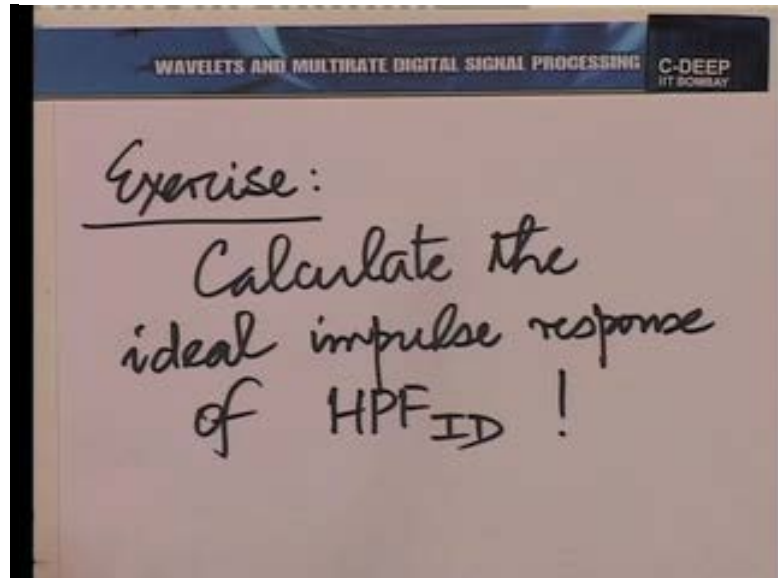 WAVELETS AND MULTIRATE DIGITAL SIGNAL PROCESSING
C-DEEP
IIT BOMBAY
Exercise:
Calculate the
ideal impulse response
of HPF_ID !